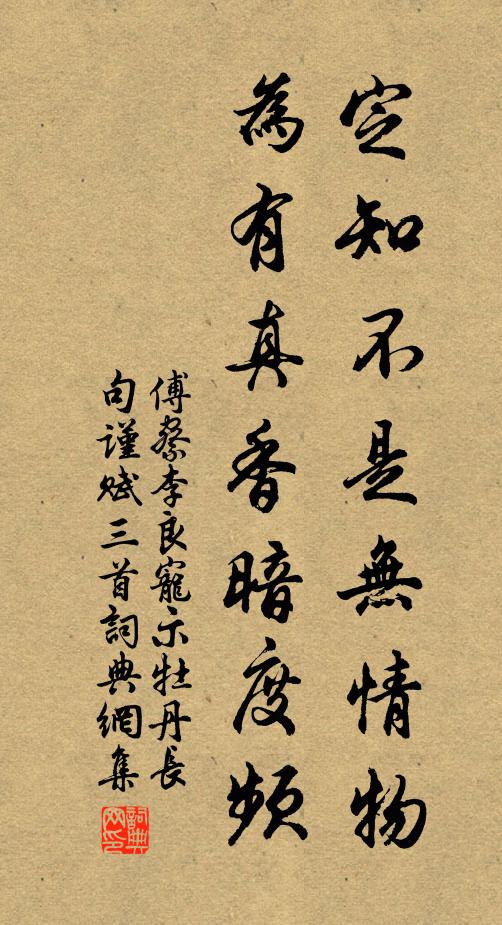 定知不是無情物
為有真香暗度頻
傅祭李良寵示牡丹長
句謹賦三首詞典網集
詞典網印